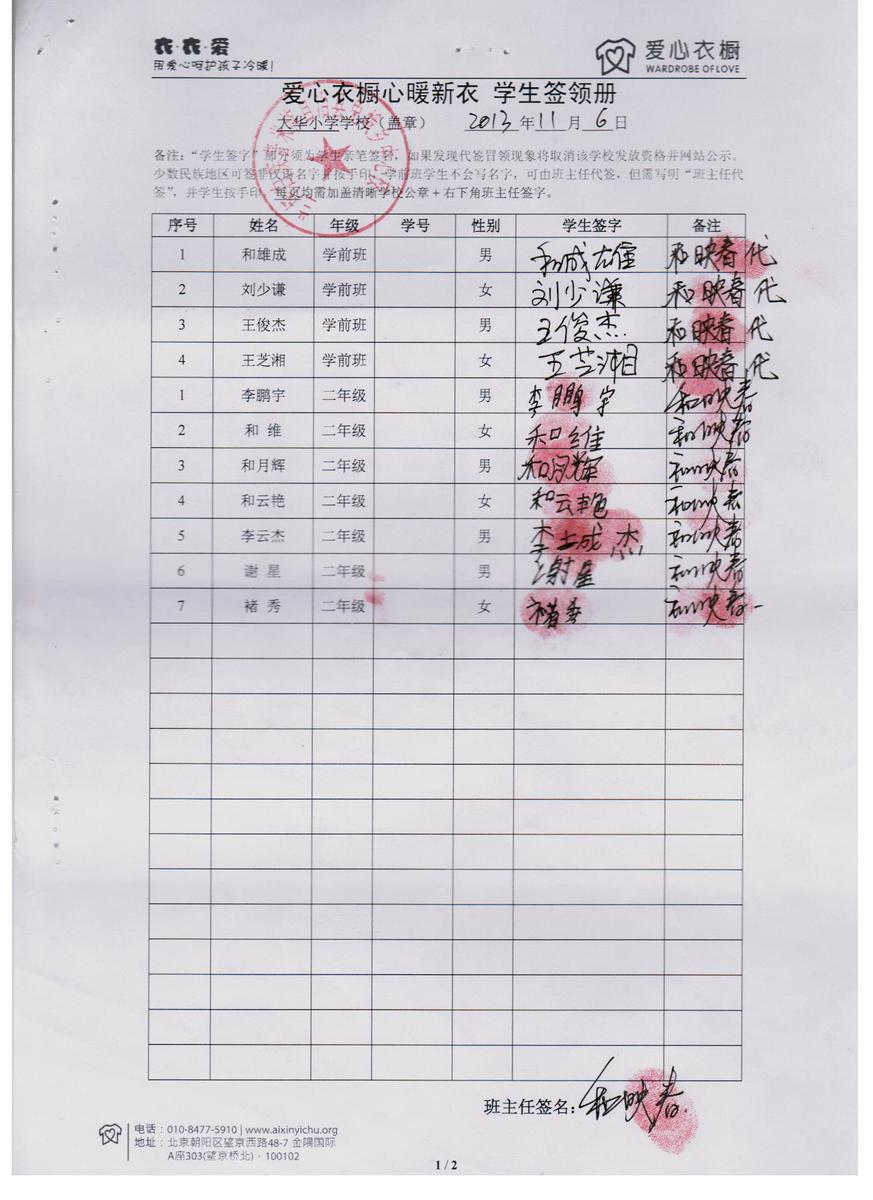 衣·衣·爱
用爱心呵护孩子冷暖!
爱心衣橱
WARDROBE OF LOVE
爱心衣橱心暖新衣 学生签领册
大华小学学校（盖章） 2013年11月6日
备注：“学生签字”部分须为学生亲笔签名，如果发现代签冒领现象将取消该学校发放资格并网站公示。
少数民族地区可签非汉语名字并按手印，学前班学生不会写名字，可由班主任代签，但需写明“班主任代
签”，并学生按手印，每页均需加盖清晰学校公章+右下角班主任签字。
序号 姓名 年级 学号 性别 学生签字 备注
1 和雄成 学前班 男 和成雄 和映春 代
2 刘少谦 学前班 女 刘少谦 和映春 代
3 王俊杰 学前班 男 王俊杰 和映春 代
4 王芝湘 学前班 女 王芝湘 和映春 代
1 李鹏宇 二年级 男 李鹏宇 和映春
2 和 维 二年级 女 和维 和映春
3 和月辉 二年级 男 和月辉 和映春
4 和云艳 二年级 女 和云艳 和映春
5 李云杰 二年级 男 李 杰 和映春
6 谢 星 二年级 男 谢星 和映春
7 褚 秀 二年级 女 褚秀 和映春
班主任签名：和映春
电话：010-8477-5910 | www.aixinyichu.org
地址：北京朝阳区望京西路48-7 金隅国际
A座303(望京桥北)·100102
1 / 2